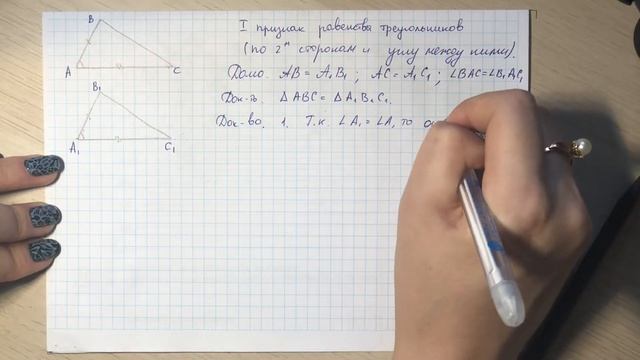 I признак равенства треугольников
(по 2ᵐ сторонам и углу между ними).
Дано. AB = A₁B₁ ; AC = A₁C₁ ; ∠BAC = ∠B₁A₁C₁
Док-ть. △ABC = △A₁B₁C₁.
Док-во. 1. Т.к. ∠A₁ = ∠A, то
B
A
C
B₁
A₁
C₁